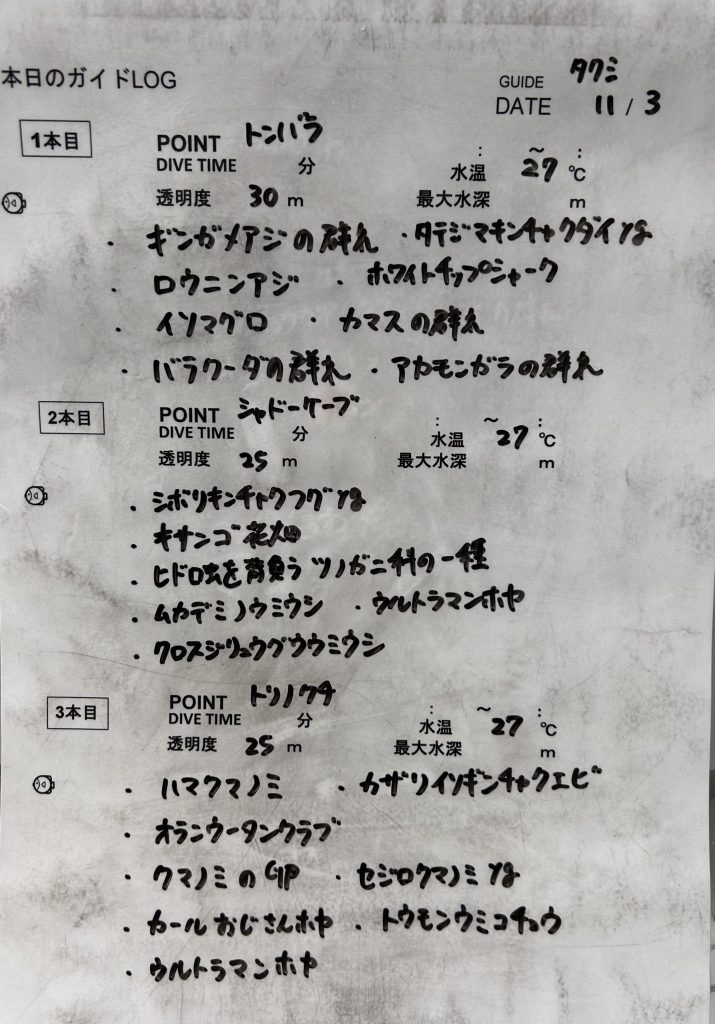 本日のガイドLOG
GUIDE タクミ
DATE 11 / 3
1本目
POINT トンバラ
DIVE TIME 分
: ~ :
水温 27 ℃
透明度 30 m 最大水深 m
・ギンガメアジの群れ ・タテジマキンチャクダイyg
・ロウニンアジ ・ホワイトチップシャーク
・イソマグロ ・カマスの群れ
・バラクーダの群れ ・アカモンガラの群れ
2本目
POINT シャドーケーブ
DIVE TIME 分
: ~ :
水温 27 ℃
透明度 25 m 最大水深 m
・シボリキンチャクフグyg
・キサンゴ花畑
・ヒドロ虫を背負うツノガニ科の一種
・ムカデミノウミウシ ・ウルトラマンホヤ
・クロスジリュウグウウミウシ
3本目
POINT トリノクチ
DIVE TIME 分
: ~ :
水温 27 ℃
透明度 25 m 最大水深 m
・ハマクマノミ ・カザリイソギンチャクエビ
・オランウータンクラブ
・クマノミのyg ・セジロクマノミyg
・カールおじさんホヤ ・トウモンウミコチョウ
・ウルトラマンホヤ